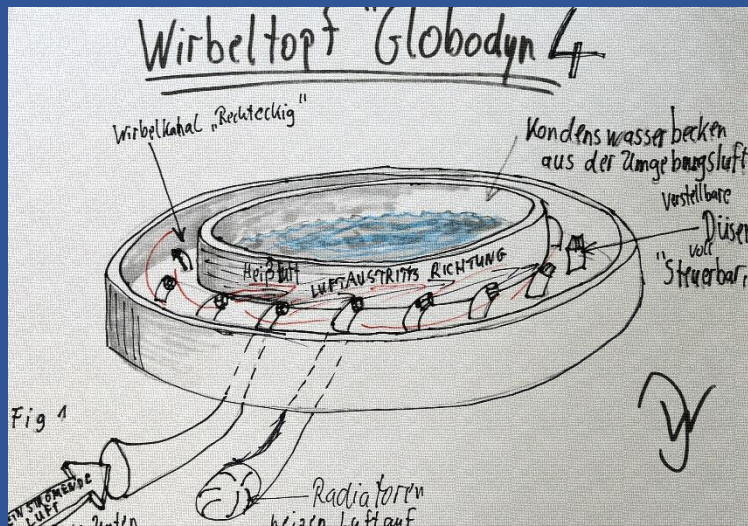 Wirbeltopf "Globodyn 4
Wirbelkanal „Rechteckig"
Kondenswasserbecken
aus der Umgebungsluft
verstellbare
Düsen
voll
"Steuerbar
Heißluft
LUFTAUSTRITTS RICHTUNG
Fig 1
EINSTRÖMENDE
LUFT
unten
Radiatoren
heizen Luft auf